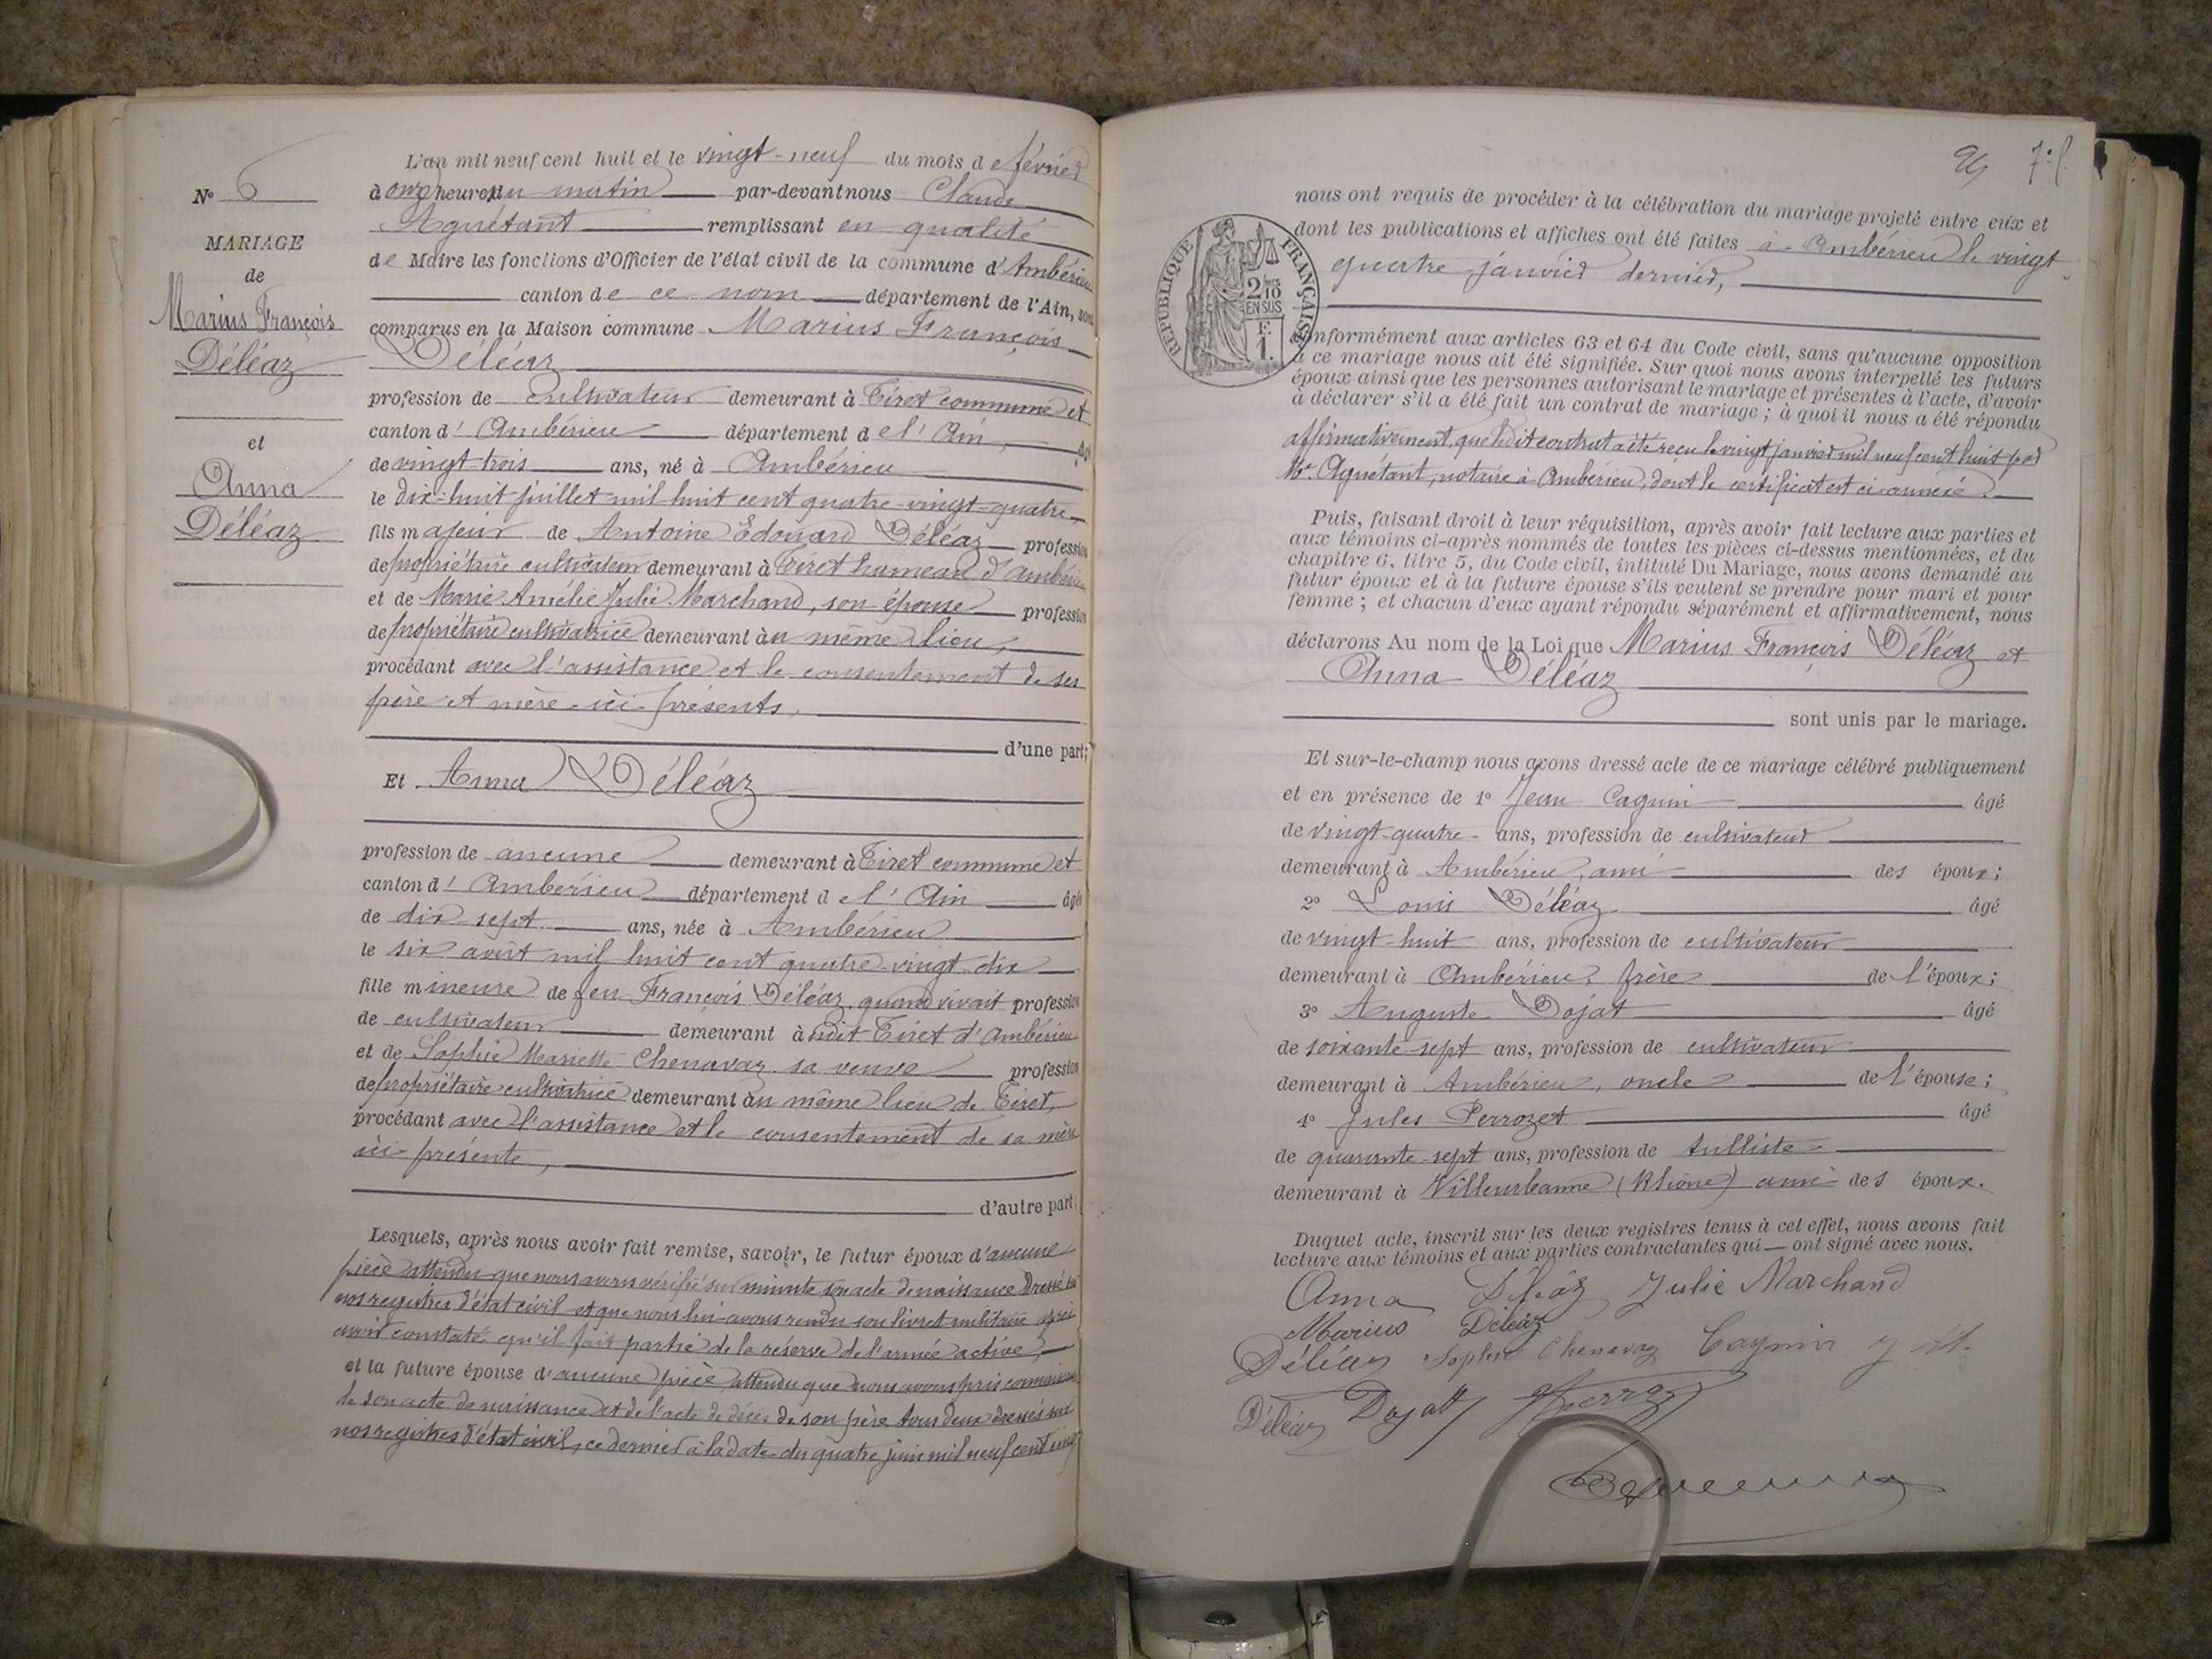 N° 6
MARIAGE
de
Marius François
Déléaz
et
Anna
Déléaz
L'an mil neuf cent huit et le vingt-neuf du mois de février
à onze heures du matin par-devant nous Claude
Aguétant remplissant en qualité
de Maire les fonctions d'Officier de l'état civil de la commune d'Ambérieu
canton de ce nom département de l'Ain, sont
comparus en la Maison commune Marius François
Déléaz
profession de cultivateur demeurant à Tiret commune et
canton d'Ambérieu département de l'Ain, âgé
de vingt-trois ans, né à Ambérieu
le dix-huit juillet mil huit cent quatre-vingt-quatre
fils majeur de Antoine Edouard Déléaz profession
de propriétaire cultivateur demeurant à Tiret hameau d'Ambérieu
et de Marie Amélie Julie Marchand, son épouse profession
de propriétaire cultivatrice demeurant au même lieu,
procédant avec l'assistance et le consentement de ses
père et mère ici présents,
d'une part;
Et Anna Déléaz
profession de aucune demeurant à Tiret commune et
canton d'Ambérieu département de l'Ain âgée
de dix-sept ans, née à Ambérieu
le six août mil huit cent quatre-vingt-dix
fille mineure de feu François Déléaz, quand vivait profession
de cultivateur demeurant audit Tiret d'Ambérieu
et de Sophie Mariette Chenavaz sa veuve profession
de propriétaire cultivatrice demeurant au même lieu de Tiret,
procédant avec l'assistance et le consentement de sa mère
ici présente,
d'autre part;
Lesquels, après nous avoir fait remise, savoir, le futur époux d'aucune
pièce attendu que nous avons vérifié sur minute son acte de naissance dressé sur
nos registres d'état civil et que nous lui avons rendu son livret militaire après
avoir constaté qu'il fait partie de la réserve de l'armée active,
et la future épouse d'aucune pièce attendu que nous avons pris connaissance
de son acte de naissance et de l'acte de décès de son père tous deux dressés sur
nos registres d'état civil, ce dernier à la date du quatre juin mil neuf cent cinq
7e f.
nous ont requis de procéder à la célébration du mariage projeté entre eux et
dont les publications et affiches ont été faites à Ambérieu le vingt
quatre janvier dernier,
RÉPUBLIQUE FRANÇAISE
2/10
EN SUS
F.
1.
conformément aux articles 63 et 64 du Code civil, sans qu'aucune opposition
à ce mariage nous ait été signifiée. Sur quoi nous avons interpellé les futurs
époux ainsi que les personnes autorisant le mariage et présentes à l'acte, d'avoir
à déclarer s'il a été fait un contrat de mariage ; à quoi il nous a été répondu
affirmativement, que ledit contrat a été reçu le vingt janvier mil neuf cent huit par
Me Aguétant, notaire à Ambérieu, dont le certificat est ci-annexé.
Puis, faisant droit à leur réquisition, après avoir fait lecture aux parties et
aux témoins ci-après nommés de toutes les pièces ci-dessus mentionnées, et du
chapitre 6, titre 5, du Code civil, intitulé Du Mariage, nous avons demandé au
futur époux et à la future épouse s'ils veulent se prendre pour mari et pour
femme ; et chacun d'eux ayant répondu séparément et affirmativement, nous
déclarons Au nom de la Loi que Marius François Déléaz et
Anna Déléaz
sont unis par le mariage.
Et sur-le-champ nous avons dressé acte de ce mariage célébré publiquement
et en présence de 1° Jean Cagnin âgé
de vingt-quatre ans, profession de cultivateur
demeurant à Ambérieu, ami des époux;
2° Louis Déléaz âgé
de vingt-huit ans, profession de cultivateur
demeurant à Ambérieu, frère de l'époux;
3° Auguste Dojat âgé
de soixante-sept ans, profession de cultivateur
demeurant à Ambérieu, oncle de l'épouse;
4° Jules Perrozet âgé
de quarante-sept ans, profession de tulliste
demeurant à Villeurbanne (Rhône) ami des époux.
Duquel acte, inscrit sur les deux registres tenus à cet effet, nous avons fait
lecture aux témoins et aux parties contractantes qui ont signé avec nous.
Anna Déléaz Julie Marchand
Marius Déléaz
Déléaz Sophie Chenavaz Cagnin
Déléaz Dojat